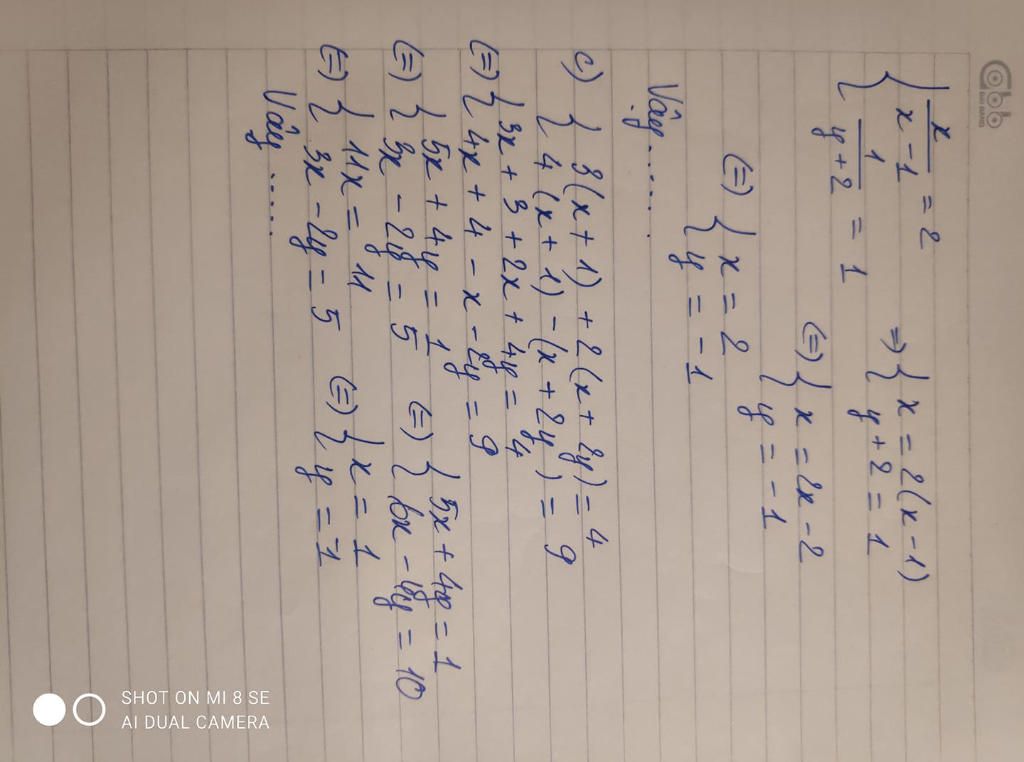 { x/(x-1) = 2 => { x = 2(x-1)
{ 1/(y+2) = 1 { y+2 = 1
(=) { x = 2x - 2
{ y = -1
(=) { x = 2
{ y = -1
Vây.....
c) { 3(x+1) + 2(x+2y) = 4
{ 4(x+1) - (x+2y) = 9
(=) { 3x + 3 + 2x + 4y = 4
{ 4x + 4 - x - 2y = 9
(=) { 5x + 4y = 1 (=) { 5x + 4y = 1
{ 3x - 2y = 5 { 6x - 4y = 10
(=) { 11x = 11 (=) { x = 1
{ 3x - 2y = 5 { y = -1
Vây.....
SHOT ON MI 8 SE
AI DUAL CAMERA